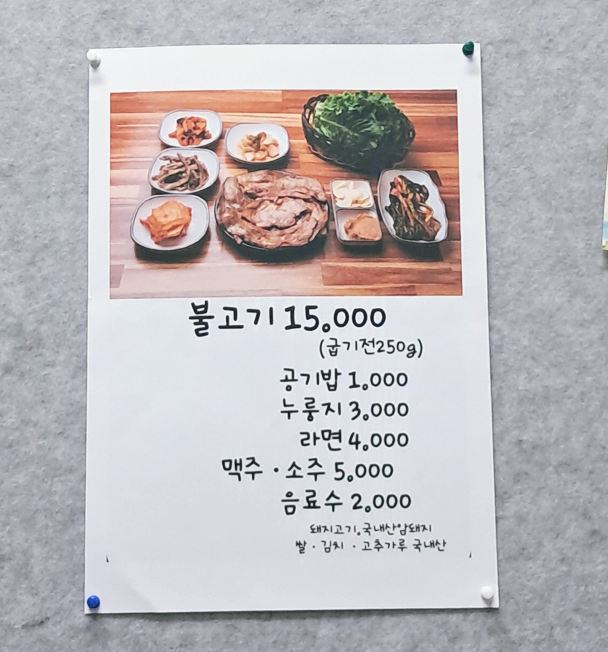 불고기 15,000
(굽기전250g)
공기밥 1,000
누룽지 3,000
라면 4,000
맥주 · 소주 5,000
음료수 2,000
돼지고기,국내산암돼지
쌀 · 김치 · 고추가루 국내산